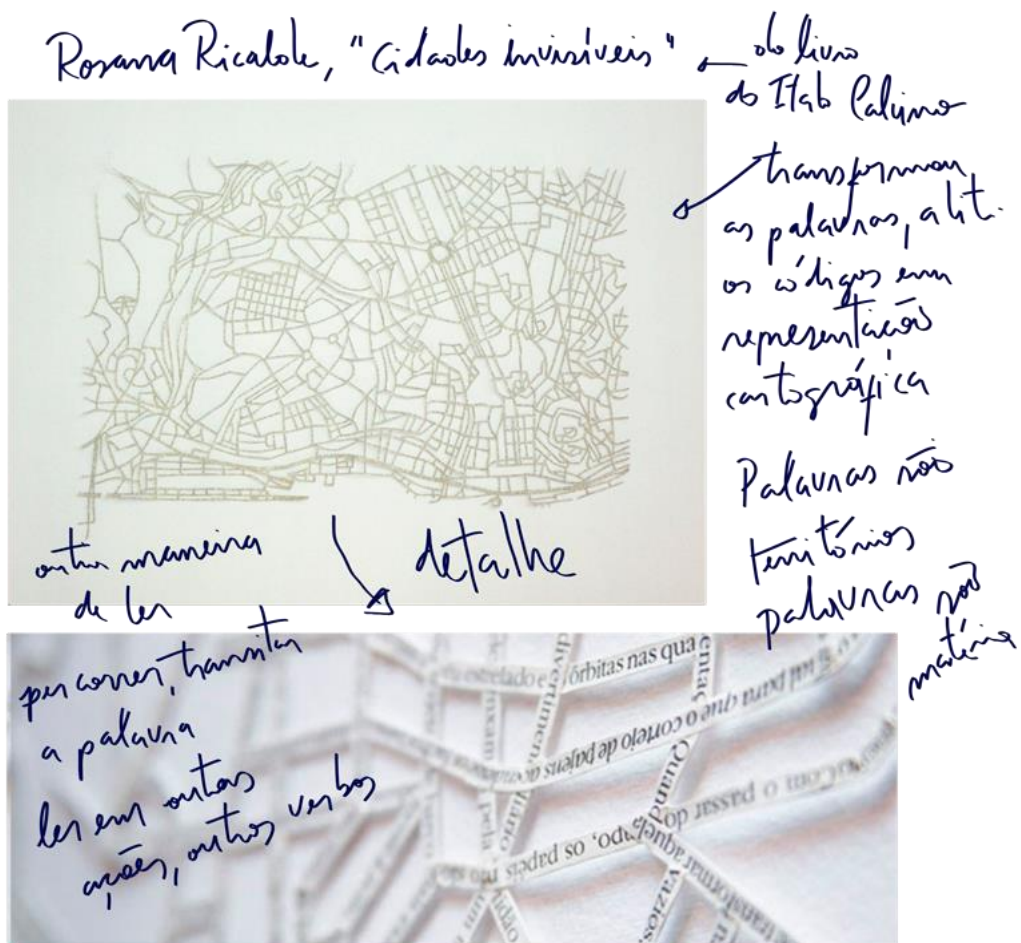 Rosana Ricalde, "Cidades invisíveis"
do livro
do Italo Calvino
transformou
as palavras, a lit.
os códigos em
representação
cartográfica
Palavras são
territórios
palavras são
matéria
detalhe
outra maneira
de ler
percorrer, transitar
a palavra
ler em outras
ações, outros verbos
órbitas nas qua
divertimen
entaç
que para que o cortejo de pajens
Quand
com o passar do
po, os papéis
transformar aquel
vazios,
pela